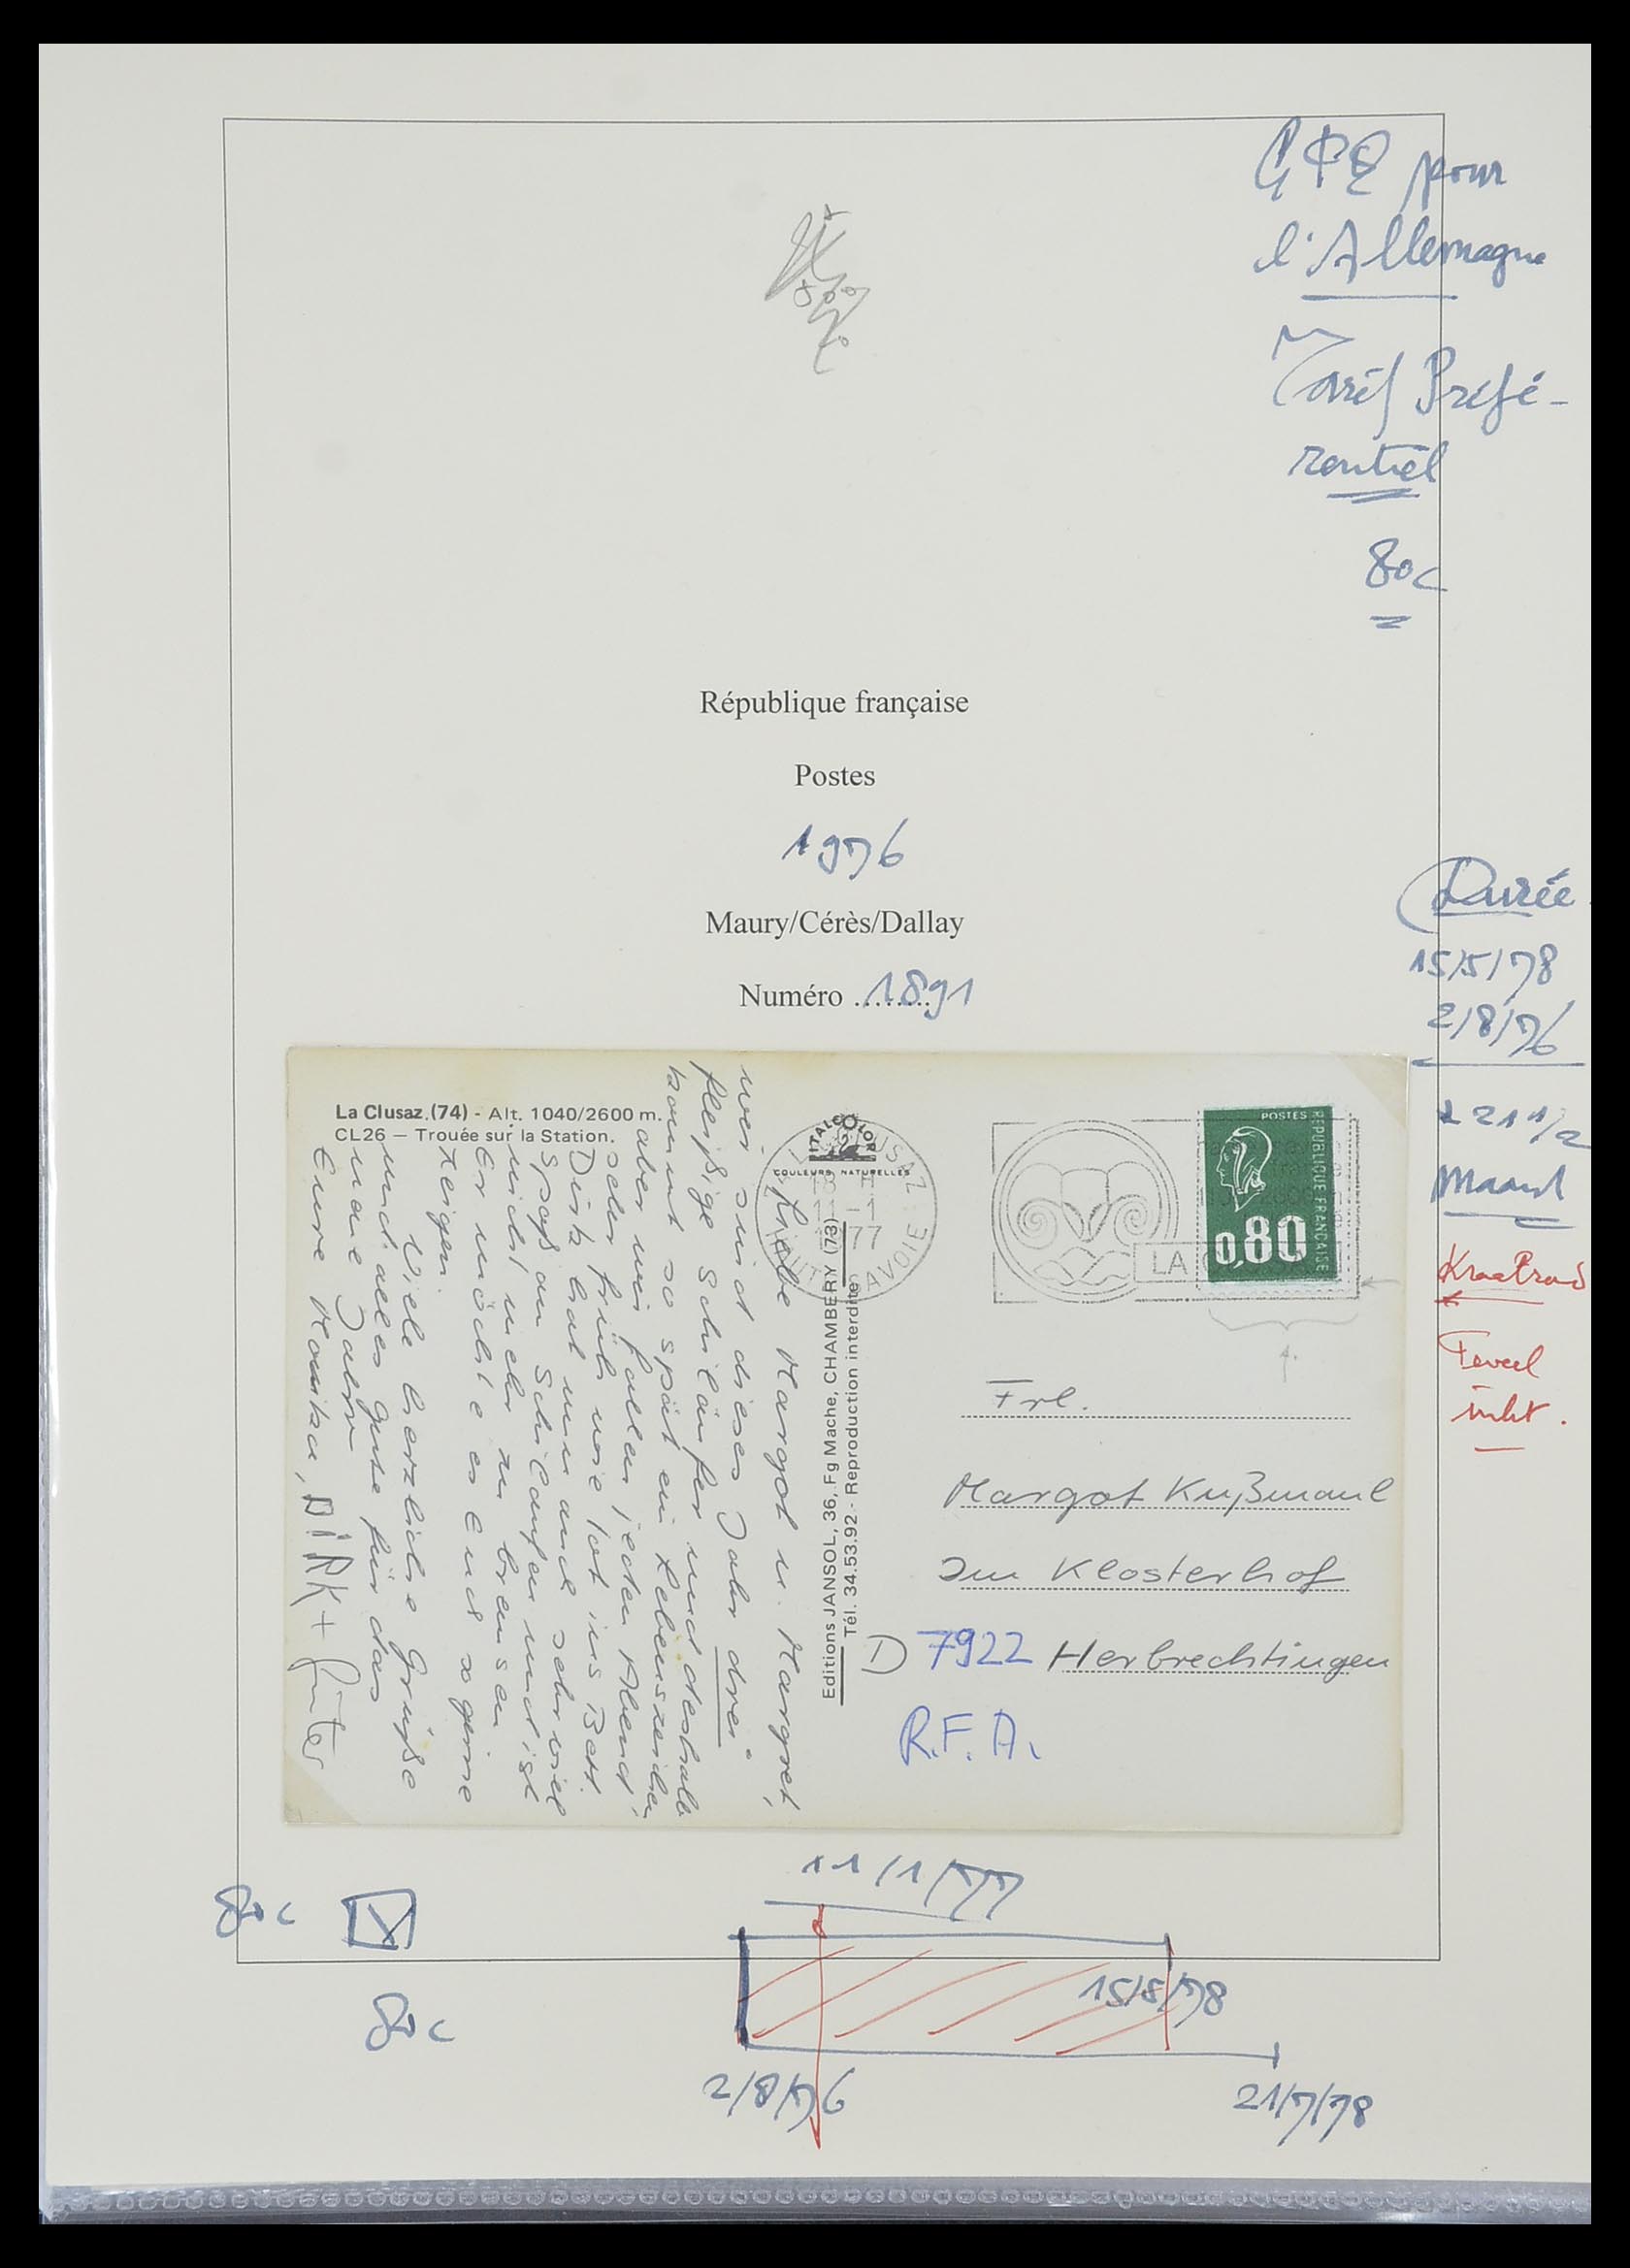 CPE pour
l'Allemagne
Tarif Préfé-
rentiel
80c
République française
Postes
1976
Maury/Cérès/Dallay
Numéro ........1891
Durée
15/5/78
2/8/76
± 21 1/2
Maand
Teveel
inkt.
La Clusaz (74) - Alt. 1040/2600 m.
CL26 — Trouée sur la Station.
ITALCOLOR
COULEURS NATURELLES
LA CLUSAZ
11 -1
1977
HAUTE SAVOIE
LA
POSTES
REPUBLIQUE FRANÇAISE
0,80
Liebe Margot u. Margret,
wir sind dieses Jahr drei
fleißige Schiläufer und deshalb
kommt so spät ein Lebenszeichen
aber wir fallen jeden Abend
sehr früh wie tot ins Bett.
Dirk hat nun auch sehr viel
Spaß am Schilaufen und ist
nicht mehr zu bremsen
Er möchte es Euch so gerne
zeigen.
Viele herzliche Grüße
und alles Gute für das
neue Jahr
Eure Monika, DiRK + Günter
Editions JANSOL, 36, Fg Mache, CHAMBERY (73)
Tél. 34.53.92 - Reproduction interdite
Frl.
Margot Kußmaul
Im Klosterhof
D 7922 Herbrechtingen
R.F.A.
11/1/77
80c
80c
15/5/78
2/8/76
21/7/78